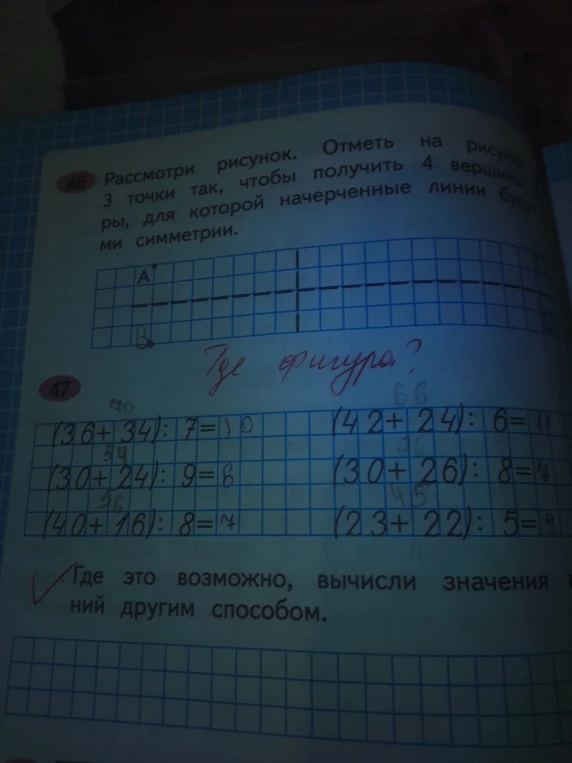 46 Рассмотри рисунок. Отметь на
3 точки так, чтобы получить 4
ры, для которой начерченные линии
ми симметрии.
А
В
Где фигура?
47
70 66
(36+34): 7=10 (42+24): 6=11
54 56
(30+24): 9=6 (30+26): 8=7
56 45
(40+16): 8=7 (23+22): 5=9
Где это возможно, вычисли значения
ний другим способом.